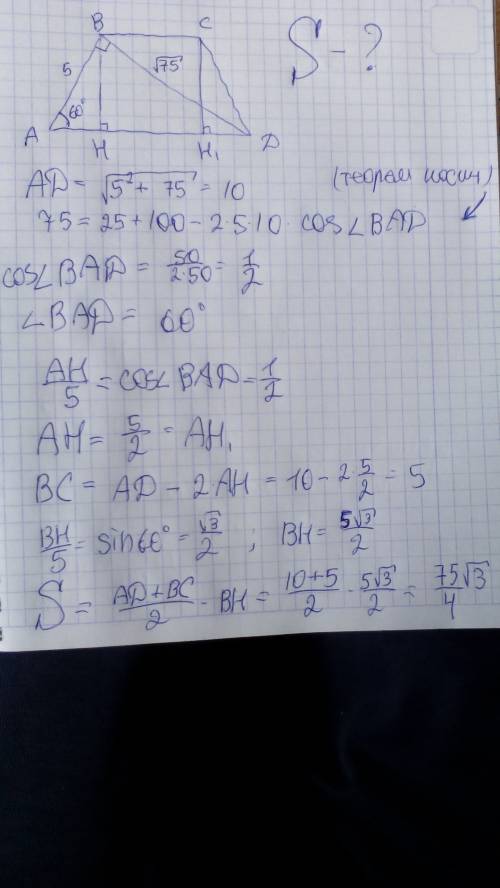 B C
S - ?
5 √75
60°
A H H₁ D
AD = √5² + 75 = 10 (теорем косин)
75 = 25 + 100 - 2·5·10· cos∠BAD
cos∠BAD = 50/2·50 = 1/2
∠BAD = 60°
AH/5 = cos∠BAD = 1/2
AH = 5/2 = AH₁
BC = AD - 2·AH = 10 - 2·5/2 = 5
BH/5 = sin60° = √3/2 ; BH = 5√3/2
S = AD+BC/2 · BH = 10+5/2 · 5√3/2 = 75√3/4